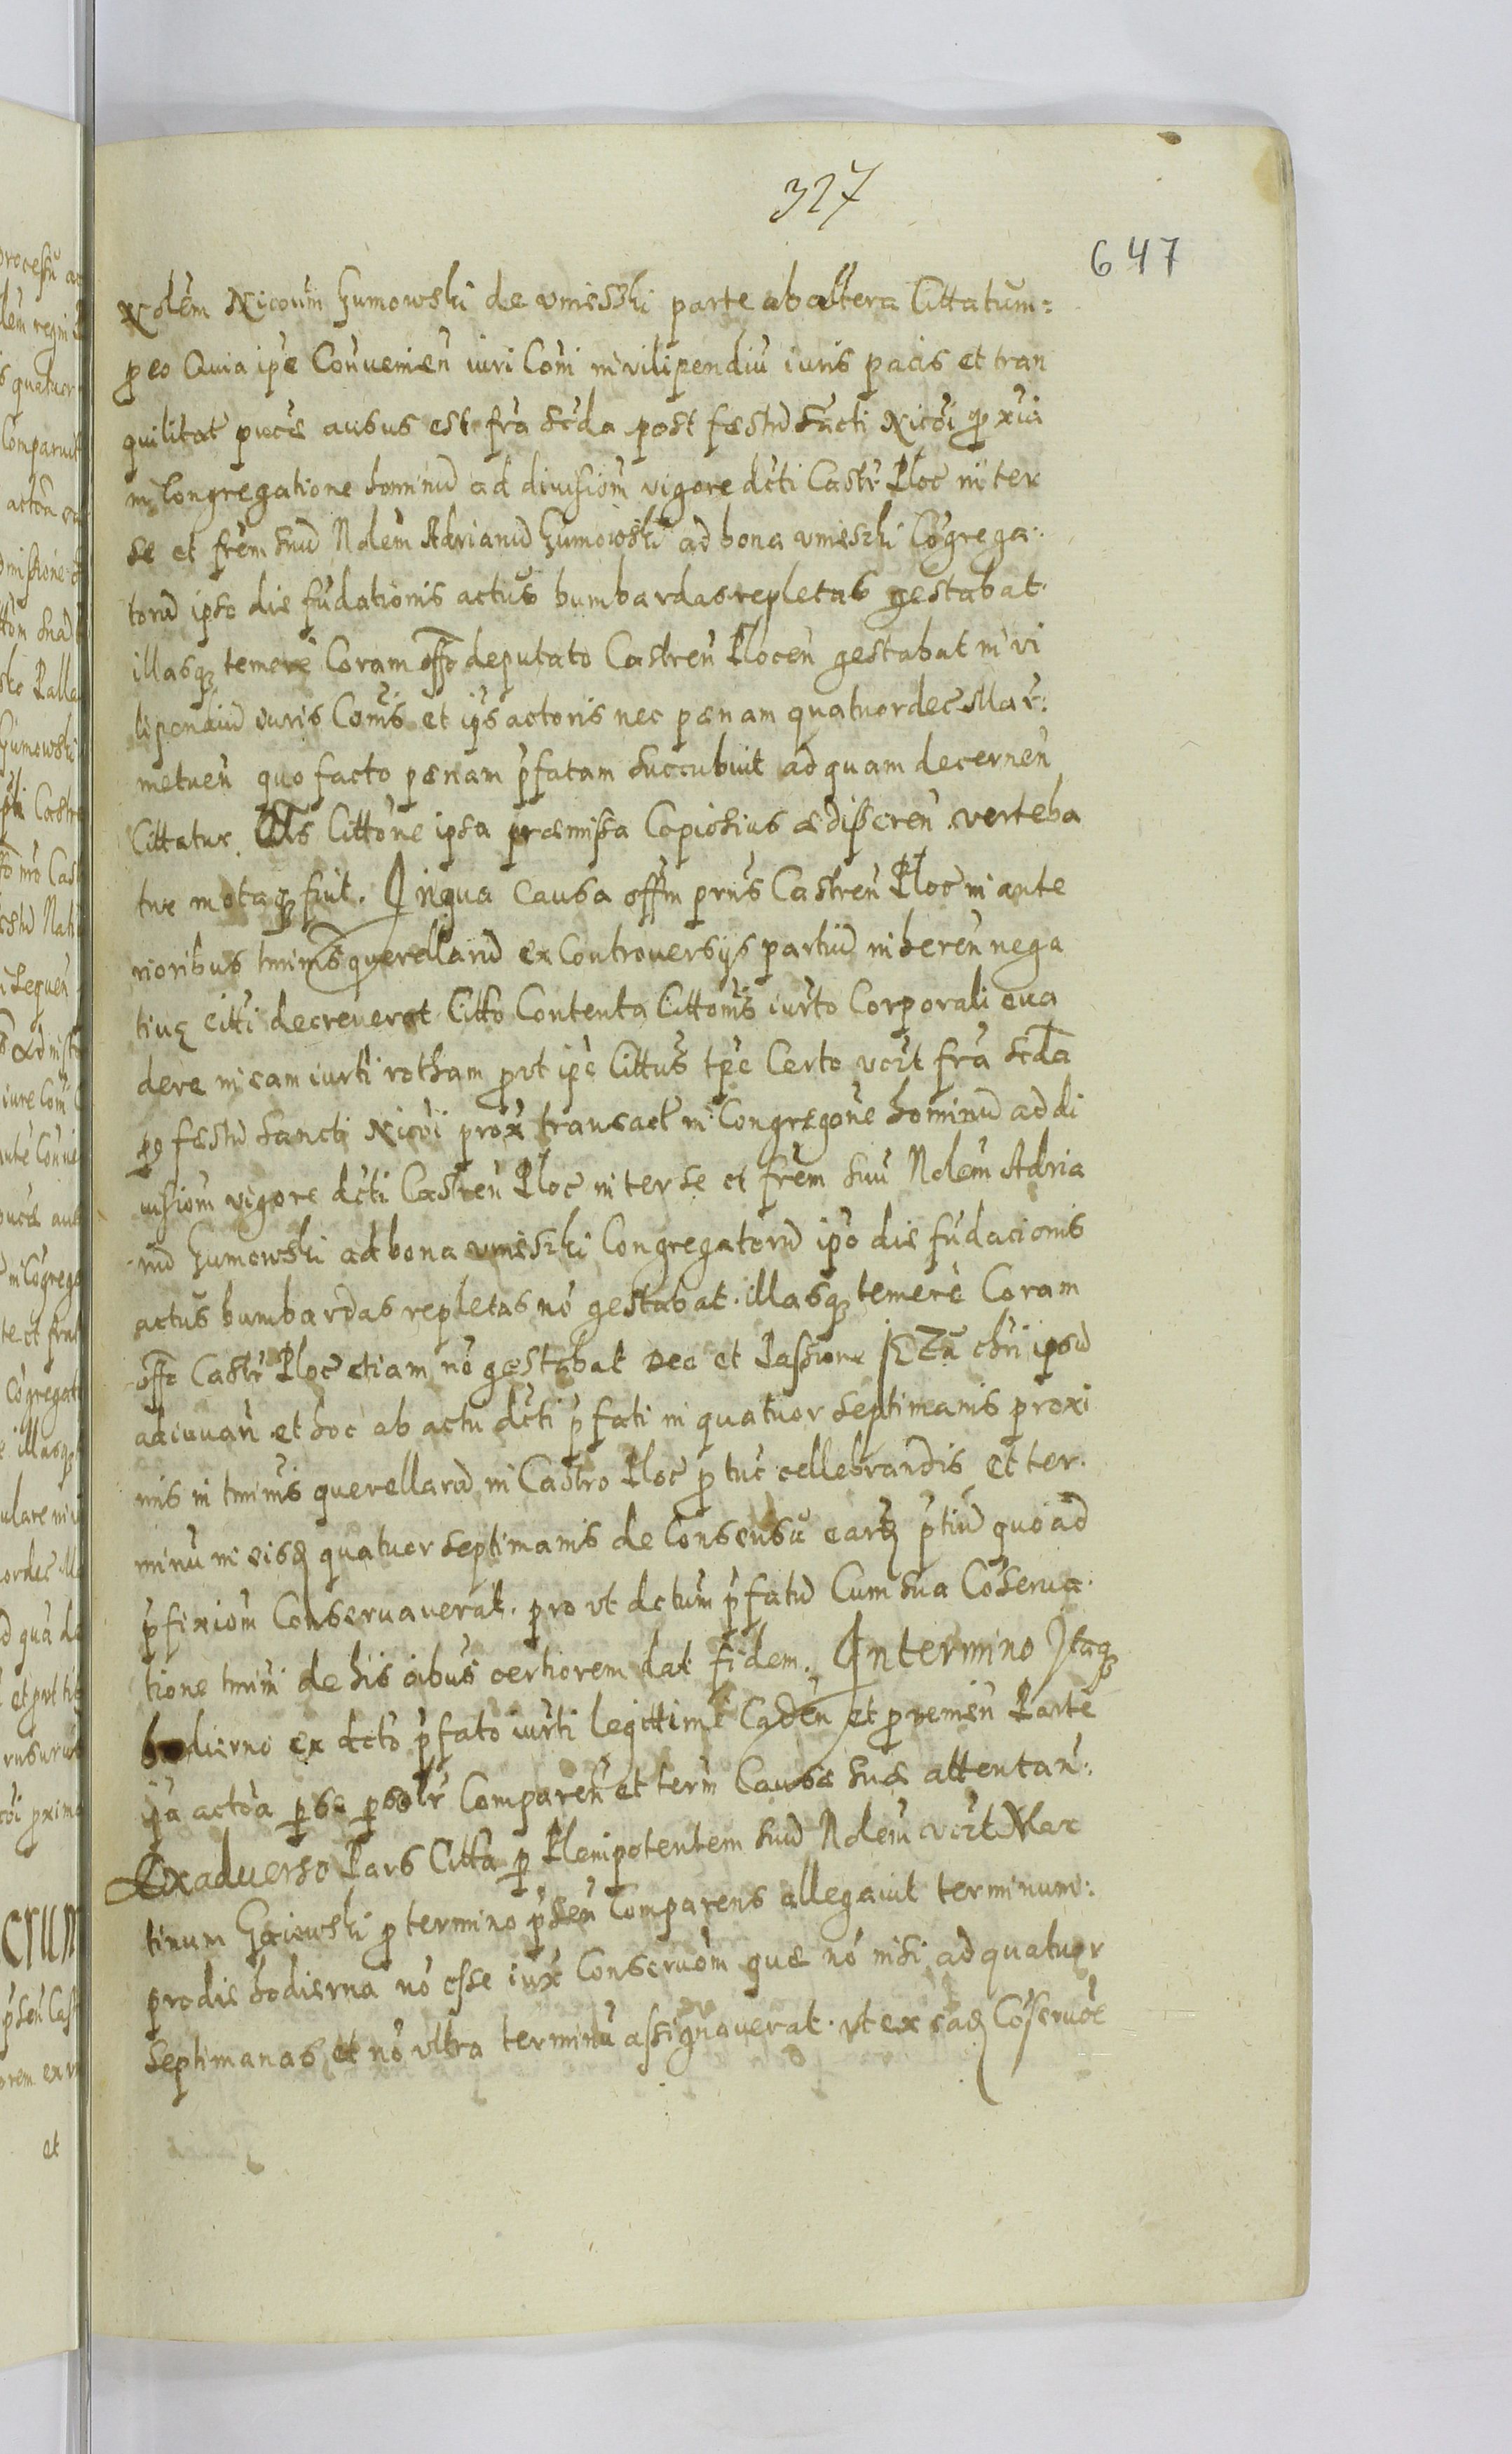 327
647
Nolem Nicoum Gumowski de vmieszki parte ab altera Cittatum:
p eo Quia ipe Conuenien iuri Coni in vilipendiu iuris pacis et tran
quilitat puce ausus est fra scda post festu sancti Nicoi proxia
in Congregatione hominu ad diuisiom vigore dcti Castr Ploc inter
se et frem suu Nolem Adrianu Gumowski ad bona vmieszki Cogrega
toru ipso die fudationis actus bumbardas repletas gestabat
illasq temere Coram offo deputato Castren Plocen gestabat in vi
lipendiu iuris Comis et ips actoris nec penam quatuordec Mar:
metuen quo facto penam pfatam succubuit ad quam decernen
Cittatur. Als Cittone ipsa premissa Copiosius edisseren verteba
tur motaq fuit. In qua Causa offm prns Castren Ploc in ante
rioribus tminis querellaru ex Controuersys partiu inheren nega
tiue citti decreuerat Citto Contenta Cittonis iurto Corporali eua
dere in eam iurti rotham prt ipe Cittus tpe Certo vczt fra scda
po festu sancti Nicoi prox transact in Congregone hominu ad di
uisiom vigore dcti Castren Ploc inter se et frem suu Nolem Adria
nu Gumowski ad bona vmieszki Congregatoru ipo die fudacionis
actus bumbardas repletas no gestabat. illasq temere Coram
offo Castr Ploc etiam no gestabat Deo et Passione chri ipsu
adiuuan et hoc ab actu dcti pfati in quatuor septimanis proxi
mis in tminis querellaru in Castro Ploc p tuc cellebrandis et ter
minu in eisd quatuor septimanis de Consensu earu ptiu quoad
pfixiom Conseruauerat. pro vt dctum pfatu Cum sua Coserua
tione tmini de his oibus certiorem dat fidem. In termino Itaq
hodierno ex dcto pfato iurti legittime Caden et proueni Parte
ipa actoa p se psolr Comparen et term Cause sue attentan:
Ex aduerso Pars Citta p Plenipotentem suu Nolem vczt Mar
tinum Gaiewski p termino psen Comparens allegauit terminum:
pro die hodierna no esse iux Conseruom que no nisi ad quatuor
septimanas et no vltra terminu assignauerat. vt ex ead Coseruoe